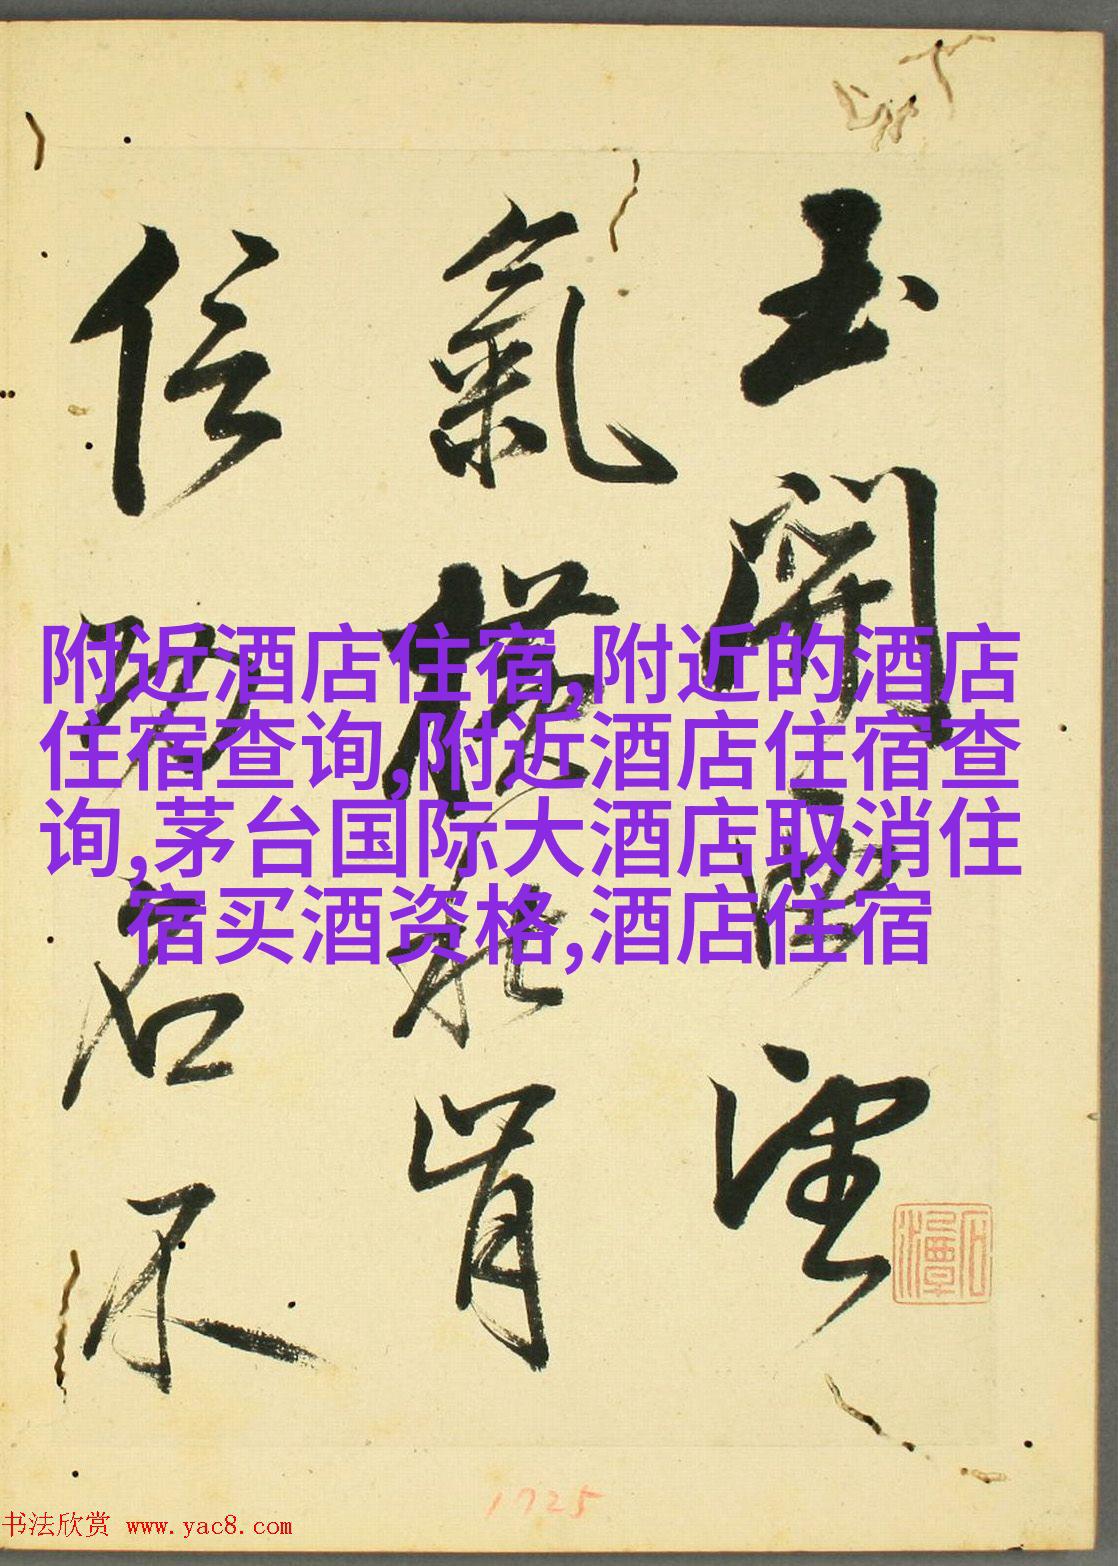 玉關西望
氣橫秋肯
信功名不
附近酒店住宿,附近的酒店
住宿查询,附近酒店住宿查
询,茅台国际大酒店取消住
宿买酒资格,酒店住宿
1725
书法欣赏 www.yac8.com